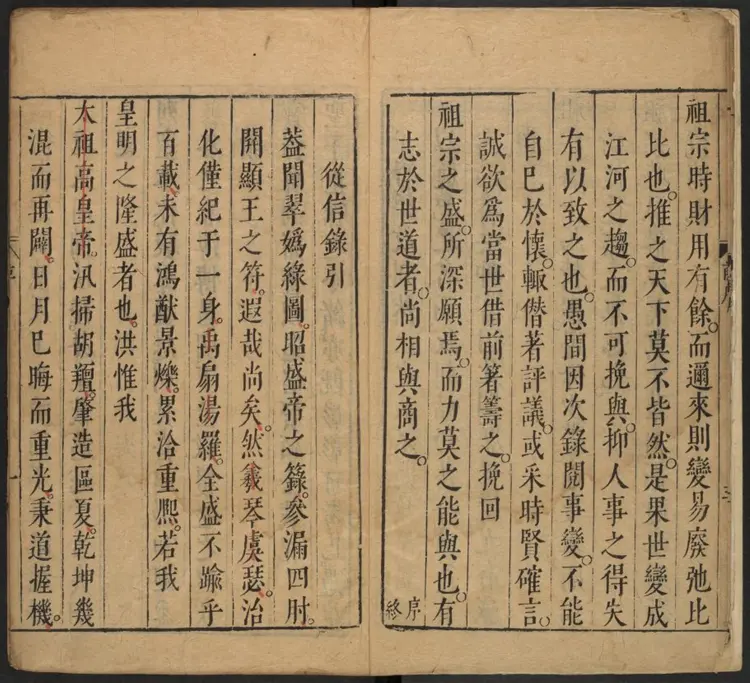 祖宗時財用有餘。而邇來則變易廢弛比
比也。推之天下莫不皆然。是果世變成
江河之趨。而不可挽與。抑人事之得失
有以致之也。愚間因次錄閱事變。不能
自巳於懷。輙僭著評議。或采時賢確言。
誠欲爲當世借前箸籌之。挽回
祖宗之盛。所深願焉。而力莫之能與也。有
志於世道者。尚相與商之。
序終
從信錄引
葢聞翠嬀綠圖。昭盛帝之籙。參漏四肘。
開顯王之符。遐哉尚矣。然羲琴虞瑟。治
化僅紀于一身。禹扇湯羅。全盛不踰乎
百載。未有鴻猷景爍。累洽重熈。若我
皇明之隆盛者也。洪惟我
太祖高皇帝。汛掃胡羶。肇造區夏。乾坤幾
混而再闢。日月巳晦而重光。秉道握機。